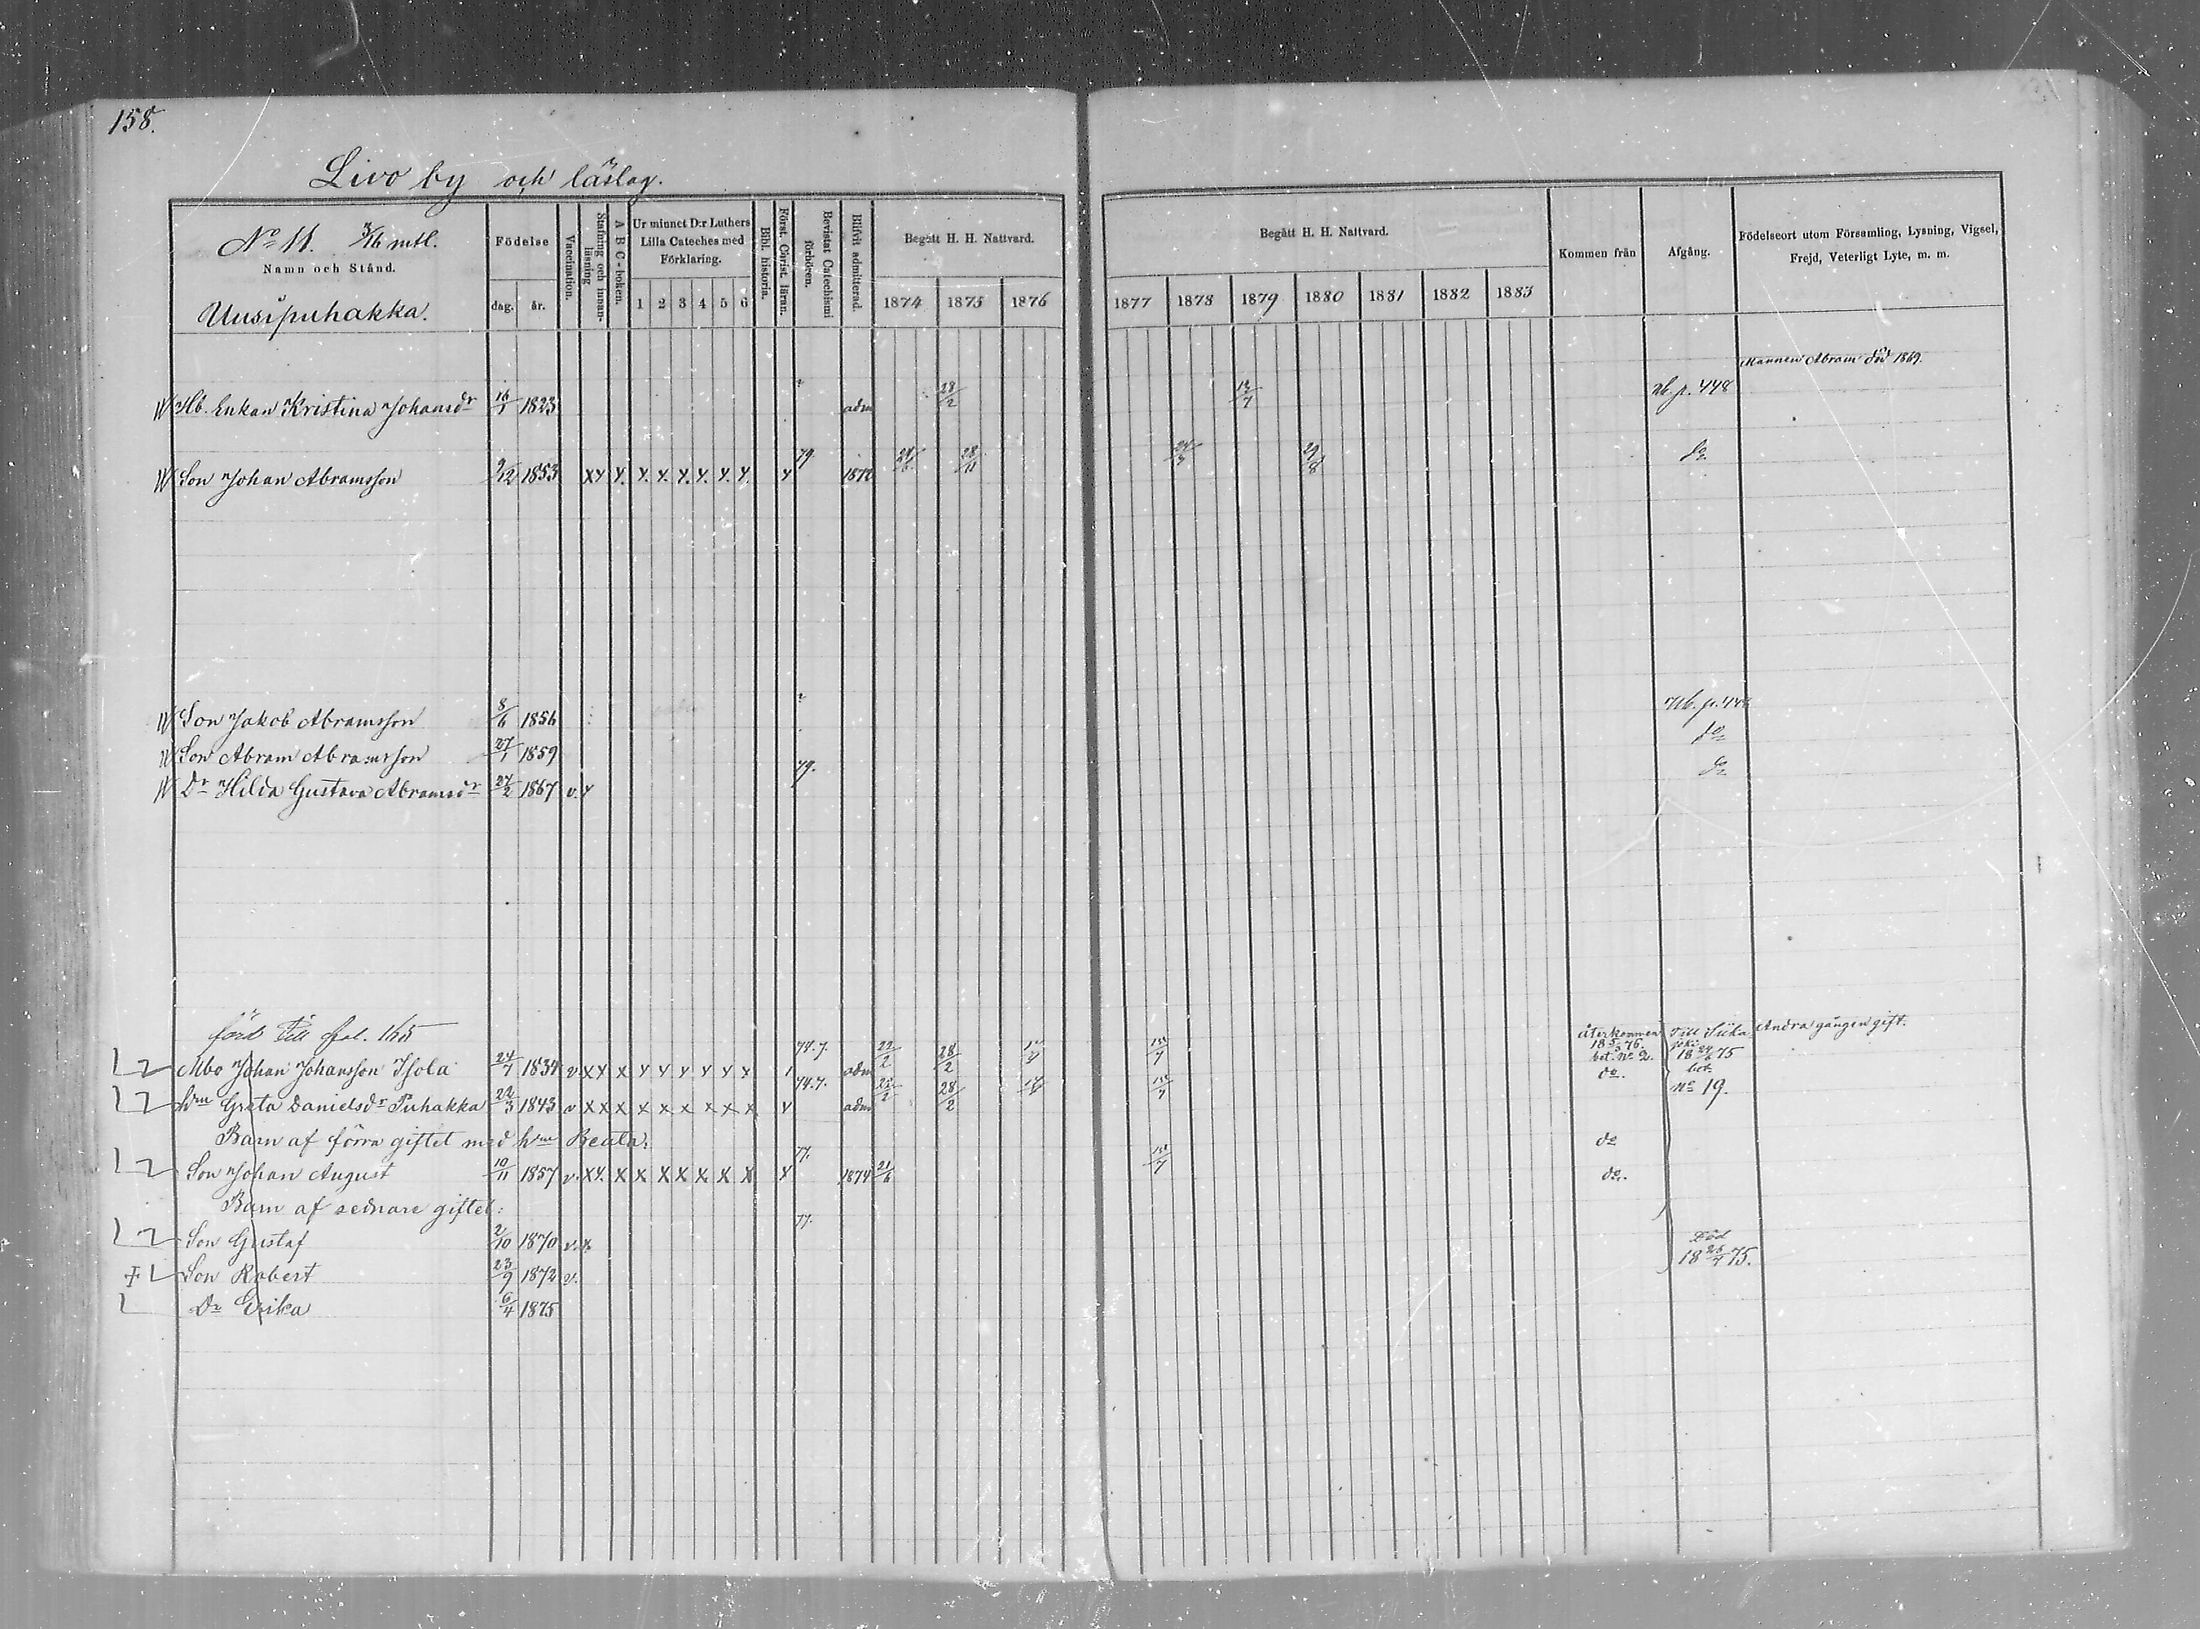 158.
Livo by och läslag.
No 11. 3/16 mtl.
Namn och Stånd.
Uusipuhakka.
Födelse
dag. år.
Vaccination.
Stafning och innanläsning
A B C-boken.
Ur minnet D:r Luthers Lilla Cateches med Förklaring.
1 2 3 4 5 6
Bibl. historia.
Först. Christ. läran.
Bevistat Catechismi förhören.
Blifvit admitterad.
Begått H. H. Nattvard.
1874 1875 1876
Begått H. H. Nattvard.
1877 1878 1879 1880 1881 1882 1883
Kommen från
Afgång.
Födelseort utom Församling, Lysning, Vigsel, Frejd, Veterligt Lyte, m. m.
Mannen Abram död 1869.
Hb. Enkan Kristina Johansdr 16/1 1823 adm 28/2 13/7 p. 448
Son Johan Abramsson 9/12 1853 x y y. y. x. y. y. y. y. y 79. 1872 28/11 29/8 do
Son Jakob Abramsson 8/6 1856
Son Abram Abramsson 27/1 1859 do
Dr Hilda Gustava Abramsdr 24/2 1867 v. y 79. do
förd till pal. 165
Mbo Johan Johansson Isola 24/7 1834 v x y x y y y y y y 74.7. adm 22/2 28/2 Återkommen 18 5/3 76. bet. No 2. Till Siikajoki 18 24/6 75 bet. Andra gången gift.
hm Greta Danielsdr Puhakka 22/3 1843 v x x x x x x x x x y 74.7. adm 22/2 28/2 do. no 19.
Barn af förra giftet med hm Beata: do
Son Johan August 10/11 1857 v. x y. x x x x x x x y 77. 1874 21/6 do.
Barn af sednare giftet:
Son Gustaf 2/10 1870 v. x 77.
Son Robert 23/9 1872 v. Död 18 25/4 75.
Dr Erika 6/4 1875